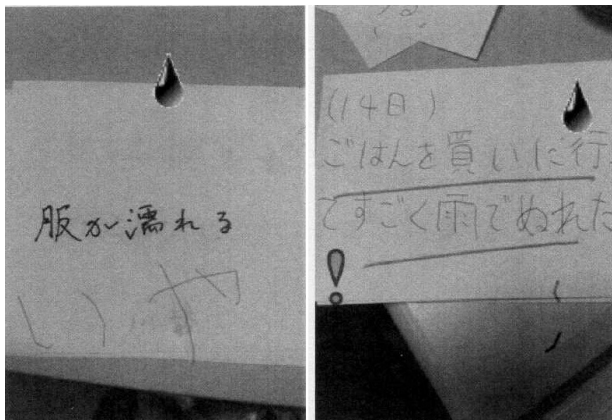 服が濡れる
いや
(14日)
ごはんを買いに行
てすごく雨でぬれた